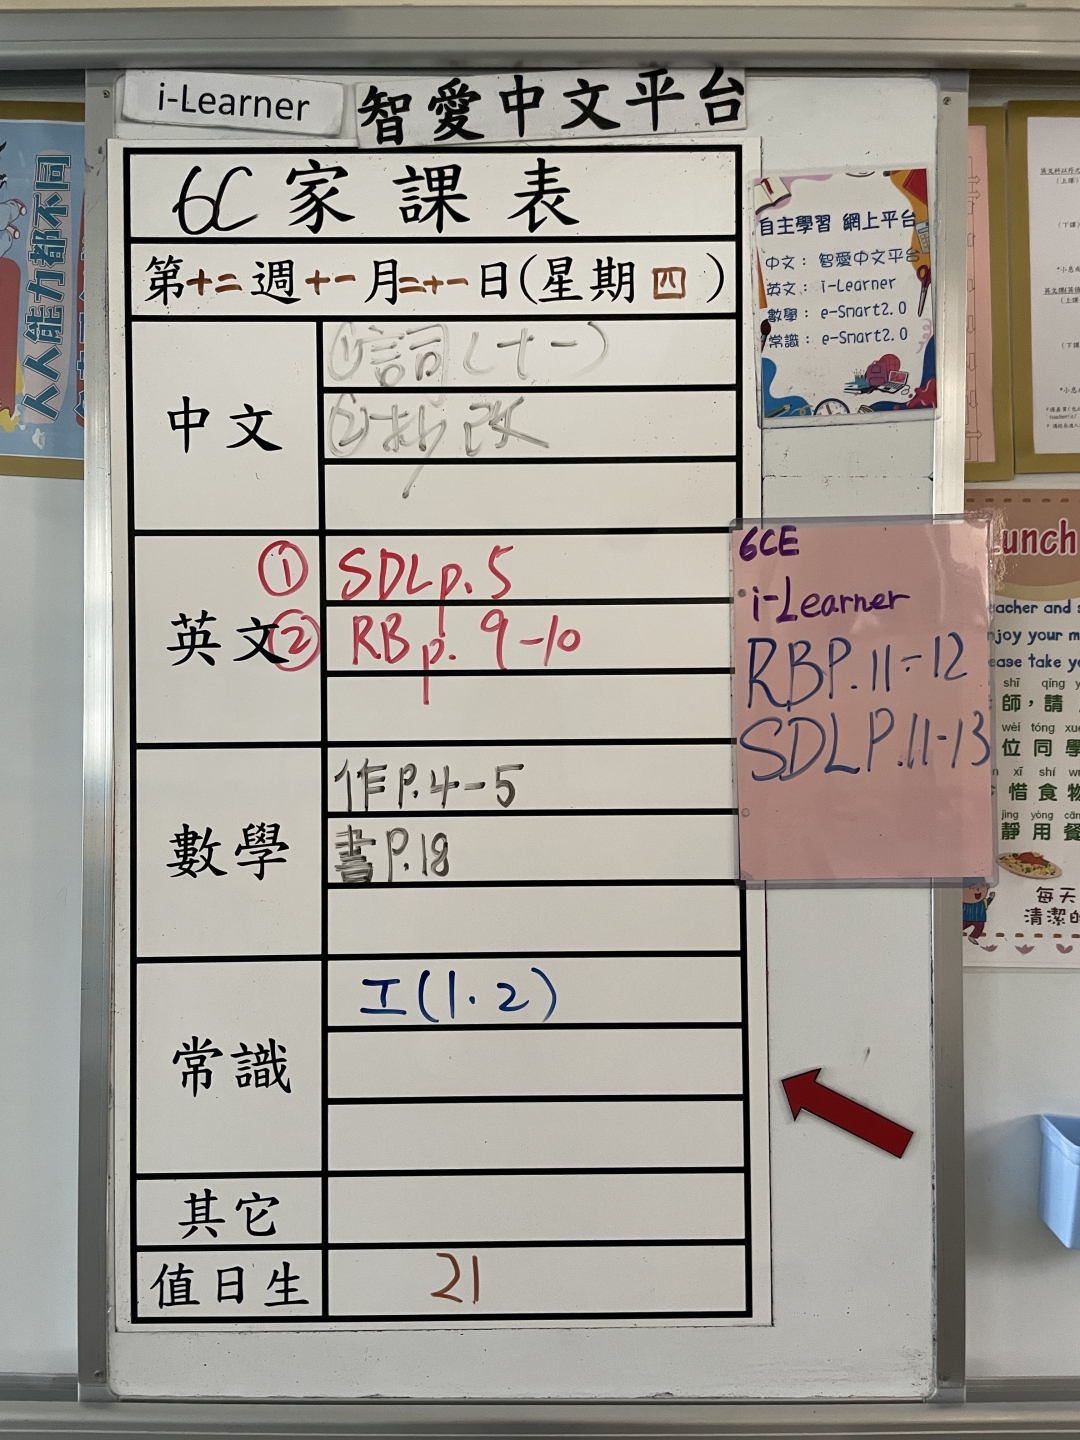 i-Learner
智愛中文平台
6C家課表
第十二週十一月二十一日(星期四)
中文
①詞(十一)
②抄改
英文
① SDL p.5
② RB p. 9-10
數學
作P.4-5
書P.18
常識
工(1.2)
其它
值日生
21
自主學習 網上平台
中文: 智愛中文平台
英文: i-Learner
數學: e-Smart2.0
常識: e-Smart2.0
6CE
i-Learner
RBP.11-12
SDLP.11-13
人人能力都不同
(上課)
(下課)
(上課)
(下課)
unch
acher and s
njoy your m
ease take y
shī qīng y
師,請
wèi tóng xué
位同學
xī shí w
惜食物
jìng yòng cān
靜用餐
每天
清潔的